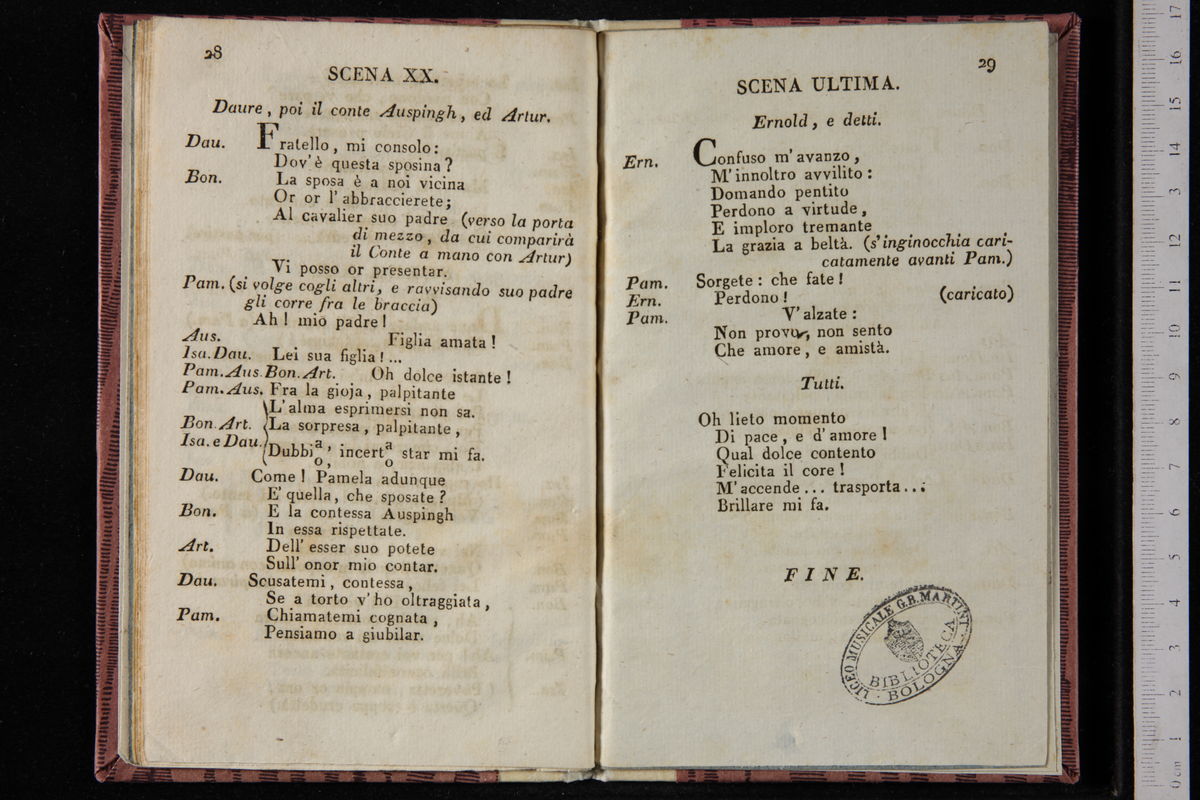 28
SCENA XX.
Daure, poi il conte Auspingh, ed Artur.
Dau. Fratello, mi consolo:
Dov'è questa sposina?
Bon. La sposa è a noi vicina
Or or l'abbraccierete;
Al cavalier suo padre (verso la porta
di mezzo, da cui comparirà
il Conte a mano con Artur)
Vi posso or presentar.
Pam. (si volge cogli altri, e ravvisando suo padre
gli corre fra le braccia)
Ah! mio padre!
Aus. Figlia amata!
Isa. Dau. Lei sua figlia!...
Pam. Aus. Bon. Art. Oh dolce istante!
Pam. Aus. Fra la gioja, palpitante
L'alma esprimersi non sa.
Bon. Art. La sorpresa, palpitante,
Isa. e Dau. Dubbia/o, incerta/o star mi fa.
Dau. Come! Pamela adunque
E' quella, che sposate?
Bon. E la contessa Auspingh
In essa rispettate.
Art. Dell' esser suo potete
Sull' onor mio contar.
Dau. Scusatemi, contessa,
Se a torto v'ho oltraggiata,
Pam. Chiamatemi cognata,
Pensiamo a giubilar.
29
SCENA ULTIMA.
Ernold, e detti.
Ern. Confuso m'avanzo,
M'innoltro avvilito:
Domando pentito
Perdono a virtude,
E imploro tremante
La grazia a beltà. (s'inginocchia cari-
catamente avanti Pam.)
Pam. Sorgete: che fate!
Ern. Perdono! (caricato)
Pam. V'alzate:
Non provo, non sento
Che amore, e amistà.
Tutti.
Oh lieto momento
Di pace, e d'amore!
Qual dolce contento
Felicita il core!
M'accende... trasporta...
Brillare mi fa.
FINE.
LICEO MUSICALE G.B. MARTINI
BIBLIOTECA
BOLOGNA
0 cm 1 2 3 4 5 6 7 8 9 10 11 12 13 14 15 16 17